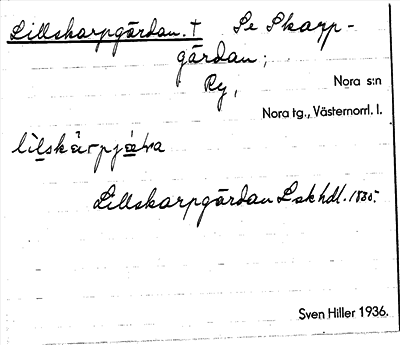 Lillskarpgårdan. † Se Skarp-
gårdan;
Ry,
Nora s:n
Nora tg., Västernorrl. l.
Lillskarpgårdan Lskhdl. 1880.
Sven Hiller 1936.